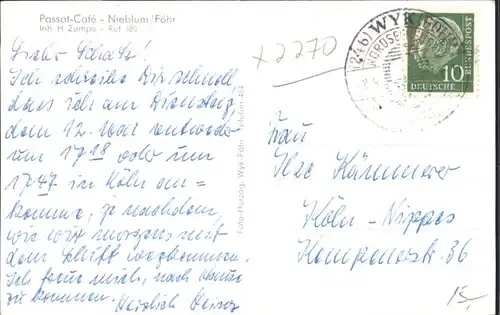 Passat-Café - Nieblum/Föhr
Inh. H. Zumpe - Ruf 380
x 2270
(24b) WYK
NORDSEE
10
DEUTSCHE
BUNDESPOST
Ich schreibe Dir schnell,
dass ich am Dienstag,
dem 12. Mai entweder
um 17 18 oder um
17 47 in Köln an=
komme, je nachdem,
wie wir morgens mit
dem Schiff wegkommen.
Ich freue mich, nach Hause
zu kommen. Herzlich Heinz
Foto-Herzog, Wyk-Föhr
Frau
Ilse Kämmerer
Köln-Nippes
Kempenerstr. 36
15,-